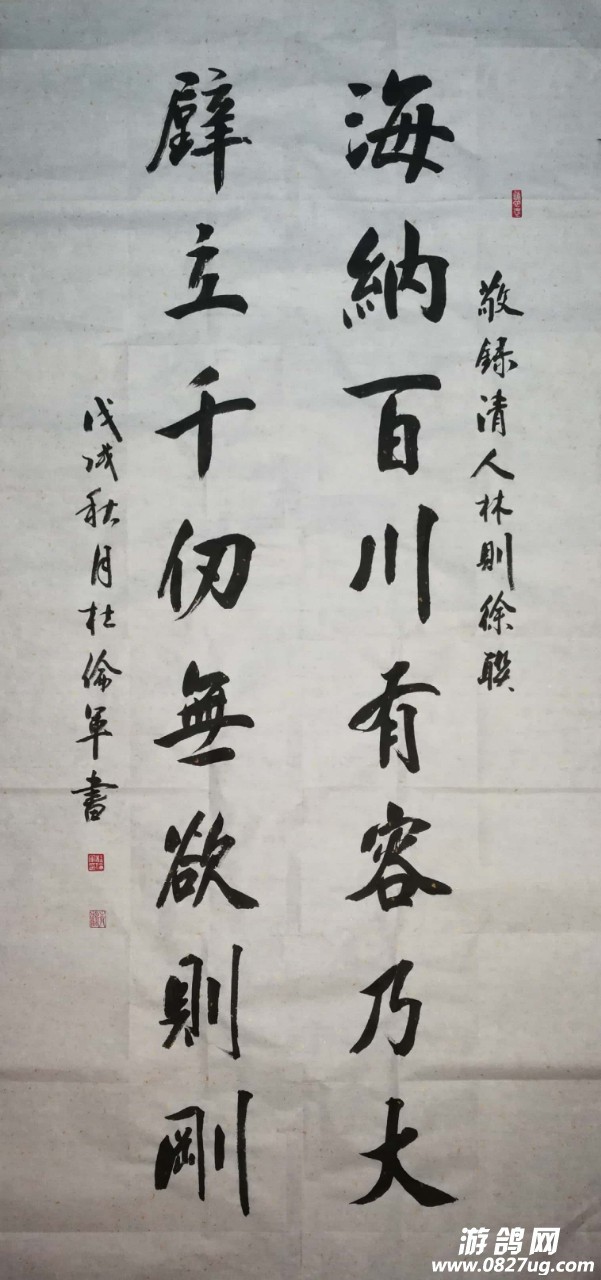 敬録清人林則徐聯
海納百川有容乃大
壁立千仞無欲則剛
戊戌秋月杜倫軍書
游鸽网
www.0827ug.com